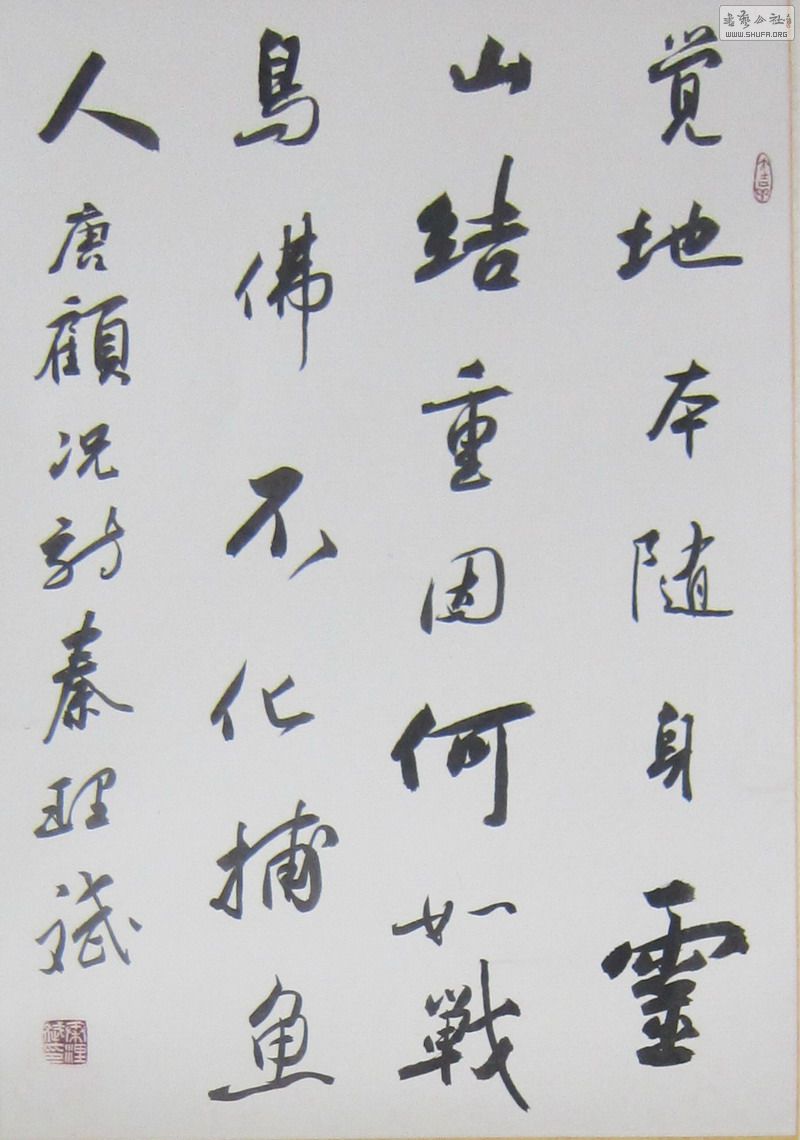 覚地本随身靈
山结重因何如戰
鳥佛不化捕魚
人唐顧况詩秦理斌
書藝公社
WWW.SHUFA.ORG